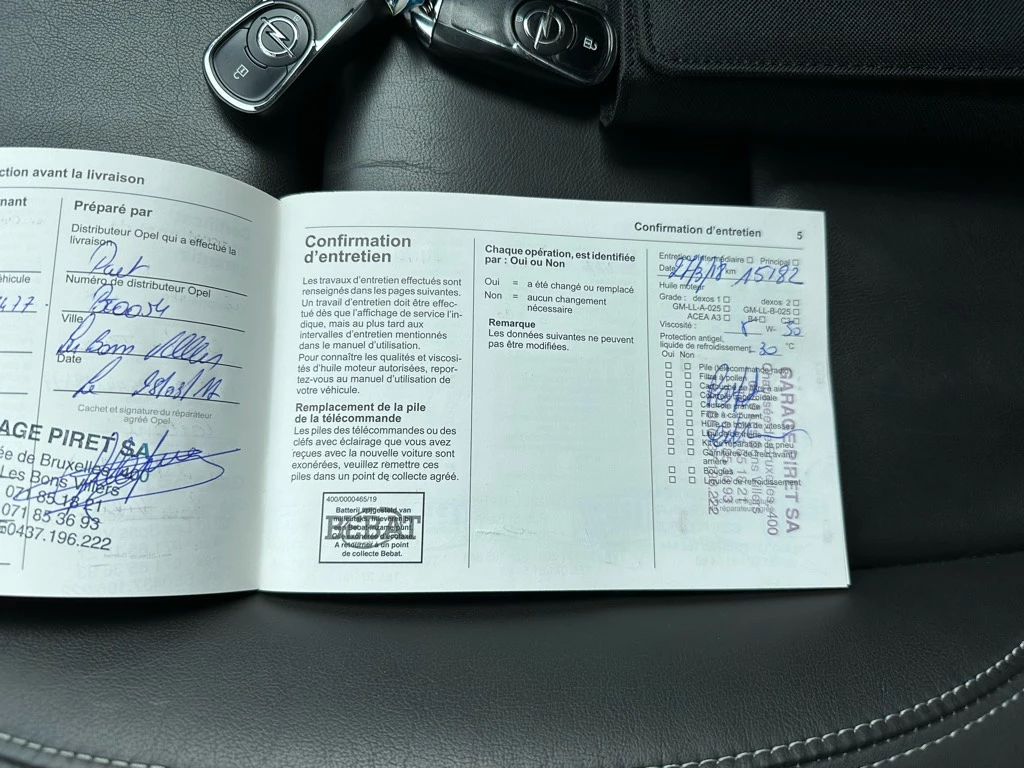 ction avant la livraison
nant
éhicule
Préparé par
Distributeur Opel qui a effectué la
livraison
Piret
Numéro de distributeur Opel
Ville
Les Bons Villers
Date
Le 28/03/17
Cachet et signature du réparateur
agréé Opel
AGE PIRET SA
ée de Bruxelles 400
Les Bons Villers
071 85 18 21
071 85 36 93
0437.196.222
Confirmation d'entretien 5
Confirmation
d'entretien
Les travaux d'entretien effectués sont
renseignés dans les pages suivantes.
Un travail d'entretien doit être effec-
tué dès que l'affichage de service l'in-
dique, mais au plus tard aux
intervalles d'entretien mentionnés
dans le manuel d'utilisation.
Pour connaître les qualités et viscosi-
tés d'huile moteur autorisées, repor-
tez-vous au manuel d'utilisation de
votre véhicule.
Remplacement de la pile
de la télécommande
Les piles des télécommandes ou des
clefs avec éclairage que vous avez
reçues avec la nouvelle voiture sont
exonérées, veuillez remettre ces
piles dans un point de collecte agréé.
400/0000465/19
BEBAT
A retourner à un point
de collecte Bebat.
Chaque opération, est identifiée
par : Oui ou Non
Oui = a été changé ou remplacé
Non = aucun changement
nécessaire
Remarque
Les données suivantes ne peuvent
pas être modifiées.
Entretien intermédiaire Principal
Date km 15182
Huile moteur
Grade : dexos 1 dexos 2
GM-LL-A-025 GM-LL-B-025
ACEA A3 B4 C3
Viscosité : W- 30
Protection antigel,
liquide de refroidissement 30 °C
Oui Non
Pile (télécommande radio)
Filtre à pollen
Cartouche de filtre à air
Filtre à carburant
Huile de boîte de vitesses
Liquide de frein
Kit de réparation de pneu
Garnitures de frein avant
arrière
Bougies
Liquide de refroidissement
GARAGE PIRET SA
Chaussée de Bruxelles, 400